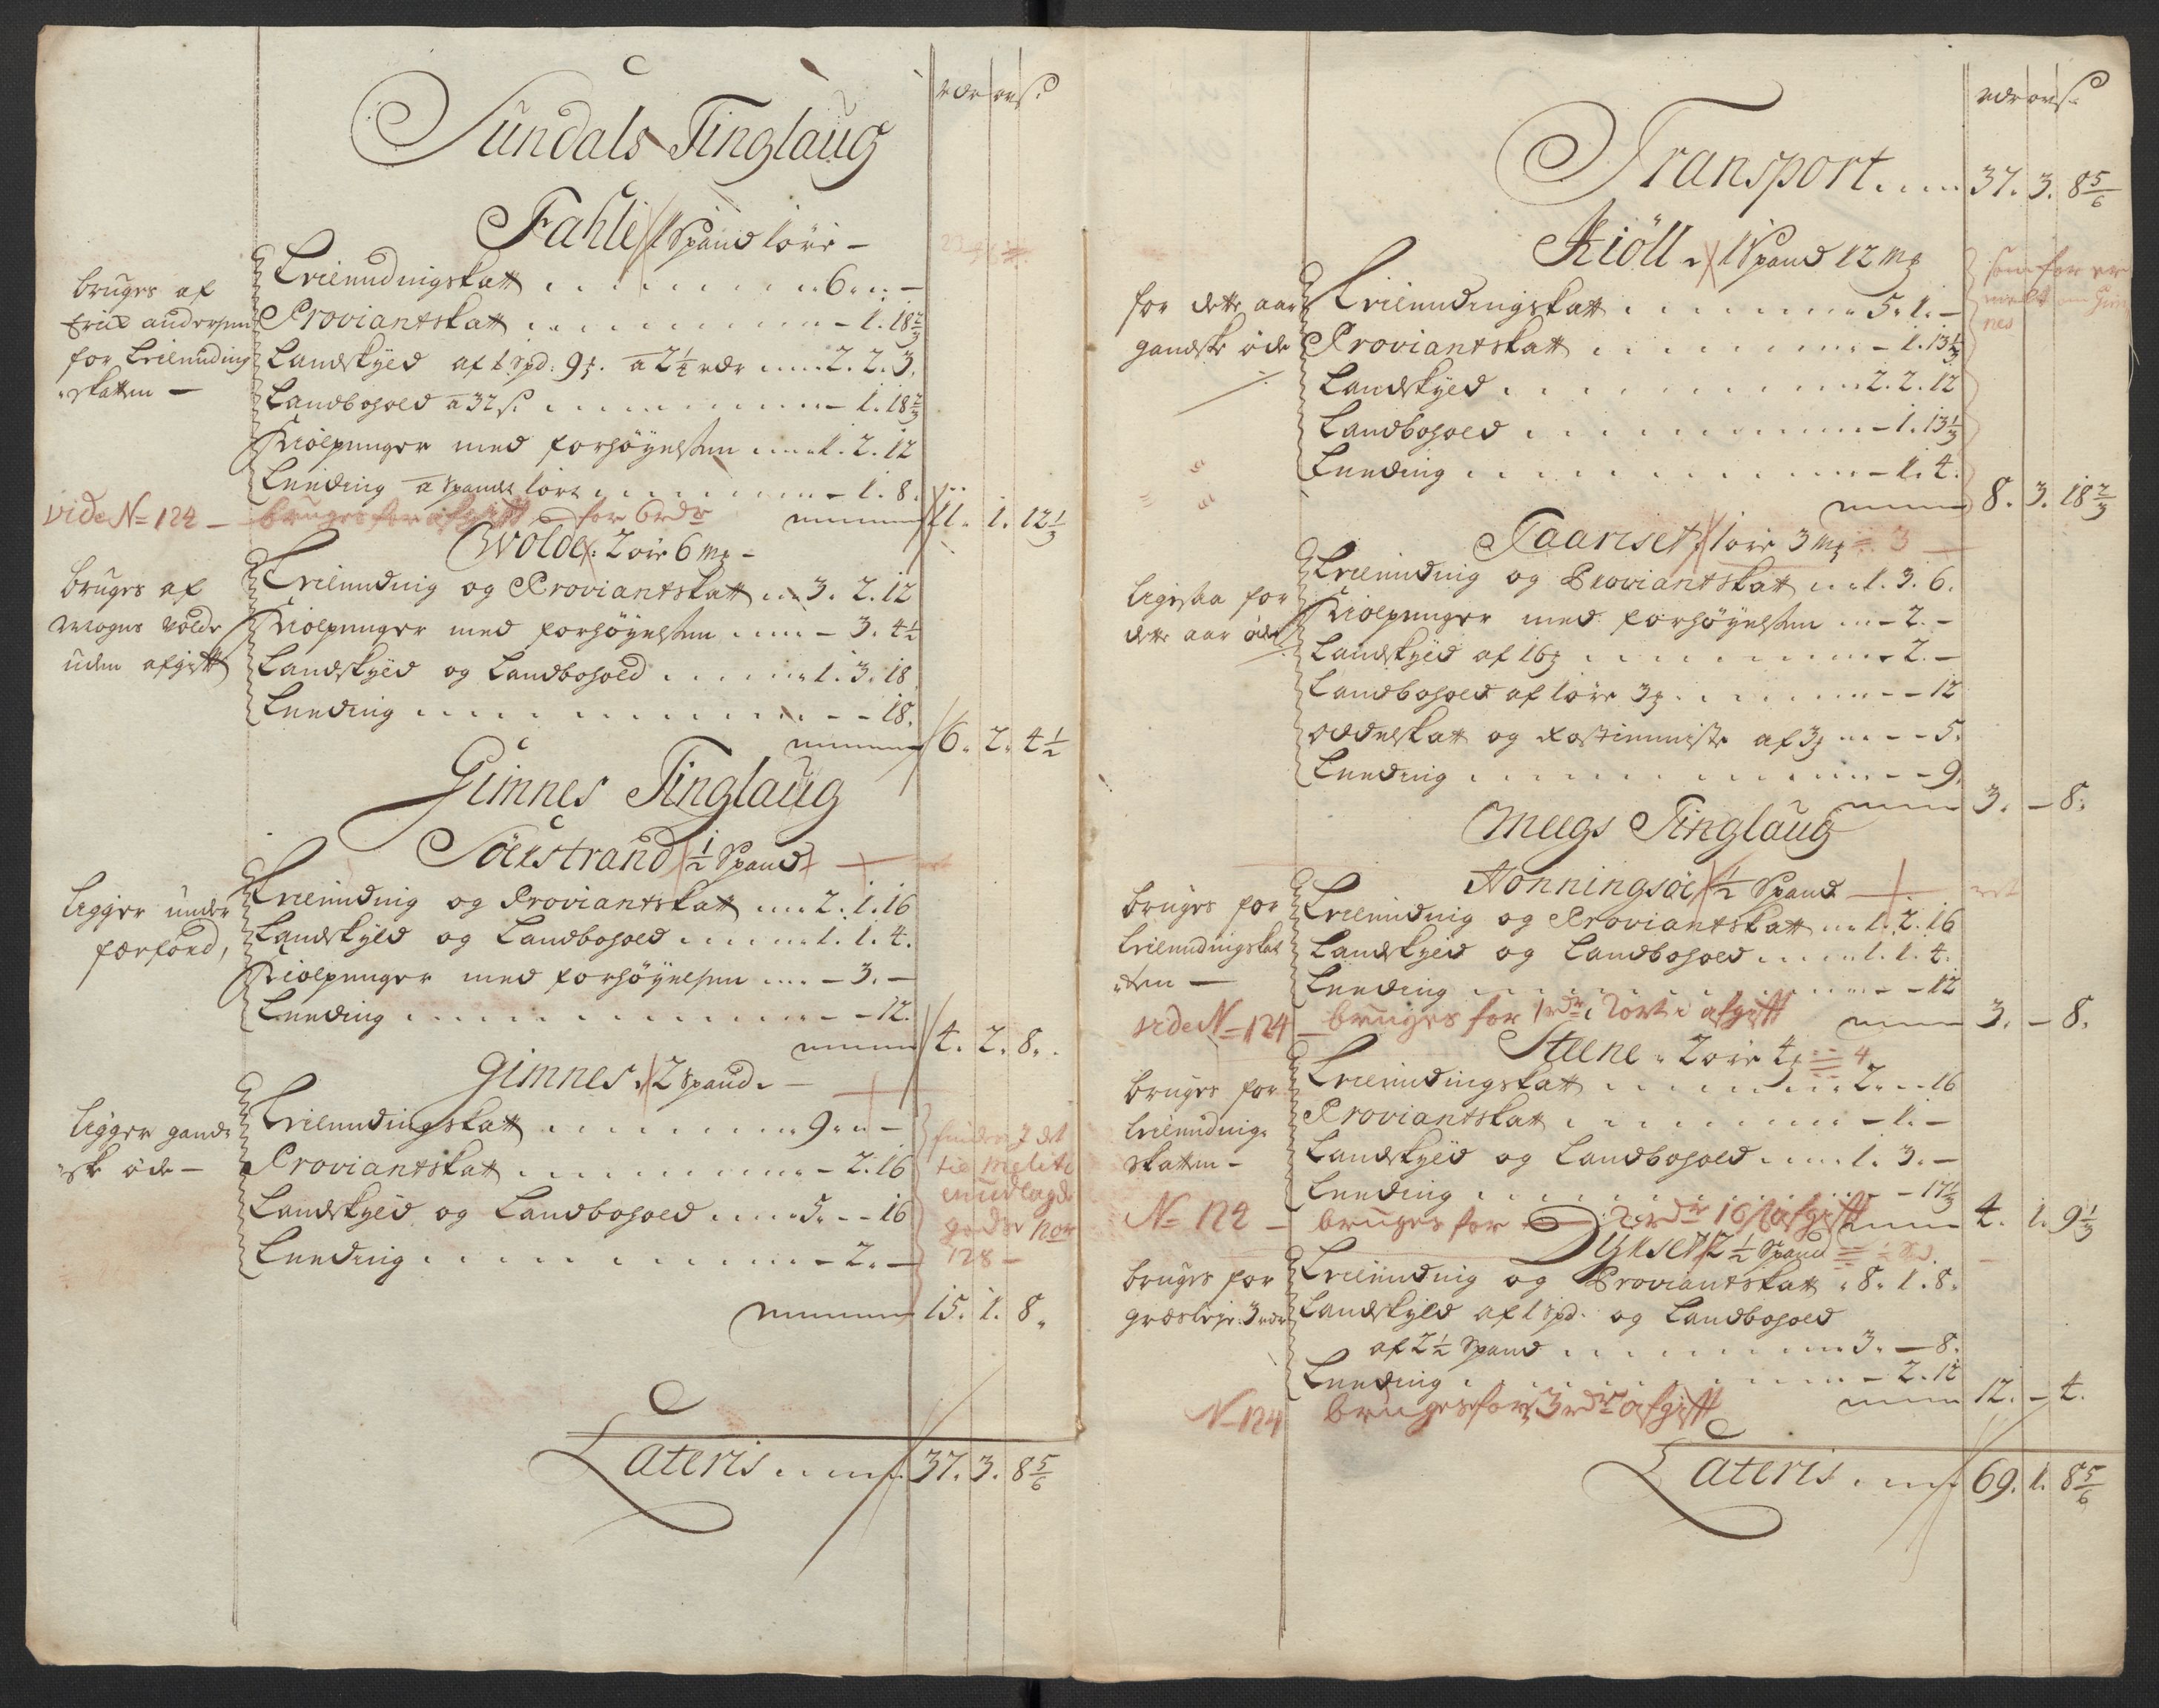 rdr ort ß.
Sundals Tinglaug
Fahle 1 Spand 1 öre -
bruges af Erick andersen for Leilendingskatten -
Leilendingskatt 6. -. -
Proviantskatt - 1. 18 2/3
Landskyld af 1 Spd: 9 à 2 1/4 rdr 2. 2. 3.
Landbohold à 32 ß. - 1. 18 2/3
Kiölpenger med forhöyelsen 1. 2. 12
Leeding à Spandt 1 ort - 1. 8.
vide No 124 - bruges for afgifft for 6 rdr
11. 1. 12 1/3
Wolde: 2 öre 6 mg -
bruges af Mogns Volde uden afgifft
Leilending og Proviantskatt 3. 2. 12
Kiölpenger med forhöyelsen - 3. 4 1/2
Landskyld og Landbohold 1. 3. 18
Leeding - - 18.
6. 2. 4 1/2
Gimnes Tinglaug
Söestrand 1/2 Spand
ligger under
Leilending og Proviantskatt 2. 1. 16
Landskyld og Landbohold 1. 1. 4.
Kiölpenger med forhöyelsen - 3. -
Leeding - - 12.
4. 2. 8.
Gimnes. 2 Spand. -
ligger gandske öde -
Leilendingskatt 9. -. -
Proviantskatt - 2. 16
Landskyld og Landbohold 3. - - 16
Leeding - 2. -
128 -
15. 1. 8.
Lateris 37. 3. 8 5/6
rdr ort ß.
Transport 37. 3. 8 5/6
Kiöll. 1 Spand 12 mg
for dette aar gandske öde
Leilendingskatt 5. 1. -
Proviantskatt - 1. 13 1/3
Landskyld 2. 2. 12
Landbohold - 1. 13 1/3
Leeding - 1. 4.
8. 3. 18 2/3
Taariset. 1 öre 3 mg = 3
ligesaa for dette aar öde
Leilending og Proviantskatt 1. 3. 6.
Kiölpenger med forhöyelsen - 2. -
Landskyld af 16 - 2. -
Landbohold af 1 öre 3 - - 12
Oddelskatt og Rostieniste af 3 - - 5.
Leeding - - 9.
3. - 8.
Meegs Tinglaug
Honningsöe 1/2 Spand
bruges for Leilendingskatten -
Leilending og Proviantskatt 1. 2. 16
Landskyld og Landbohold 1. 1. 4.
Leeding - - 12
vide No 124 - bruges for 1 rdr 2 ort i afgifft
3. - 8.
Steene. 2 öre 4 = 4
bruges for Leilendingskatten -
Leilendingskatt 2. - - 16
Proviantskatt - 1. -
Landskyld og Landbohold 1. 3. -
Leeding - - 17 1/3
No 124 - bruges for 2 rdr 16 ß afgifft
4. 1. 9 1/3
2 1/2 Spand
bruges for græsleje 3 rdr
Leilending og Proviantskatt 8. 1. 8.
Landskyld af 1 Spd. og Landbohold
af 2 1/2 Spand 3. - 8.
Leeding - 2. 12
No 124 bruges for 3 rdr afgifft
12. - 4.
Lateris 69. 1. 8 5/6